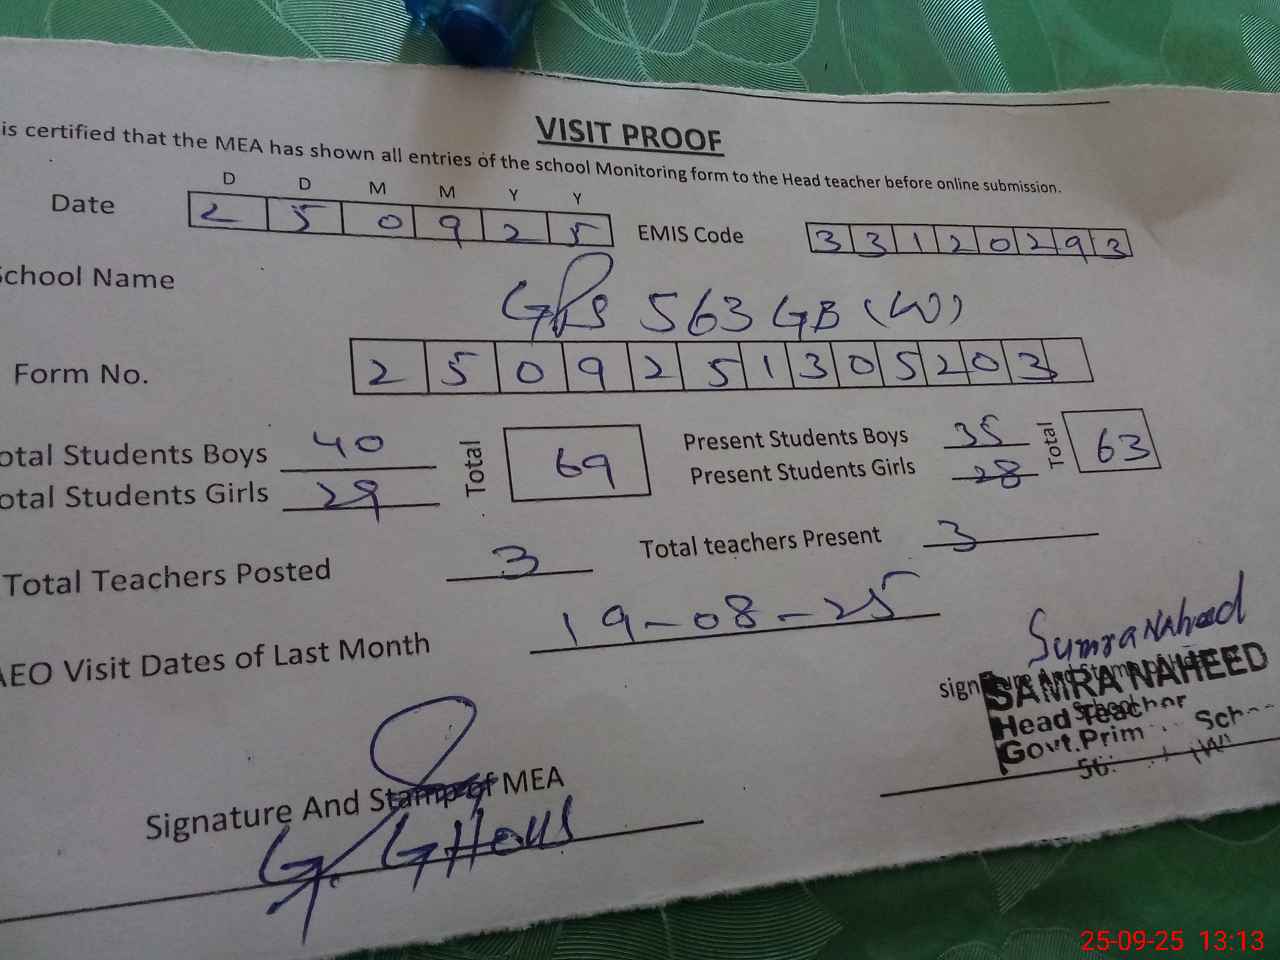 VISIT PROOF
is certified that the MEA has shown all entries of the school Monitoring form to the Head teacher before online submission.
D D M M Y Y
Date 2 5 0 9 2 5 EMIS Code 3 3 1 2 0 2 9 3
School Name GPS 563 GB (W)
Form No. 2 5 0 9 2 5 1 3 0 5 2 0 3
otal Students Boys 40 Total 69 Present Students Boys 35 Total 63
otal Students Girls 29 Present Students Girls 28
Total Teachers Posted 3 Total teachers Present 3
AEO Visit Dates of Last Month 19-08-25
Sumra Naheed
SAMRA NAHEED
Head Teacher
Govt. Prim Sch
Signature And Stamp of MEA
25-09-25 13:13